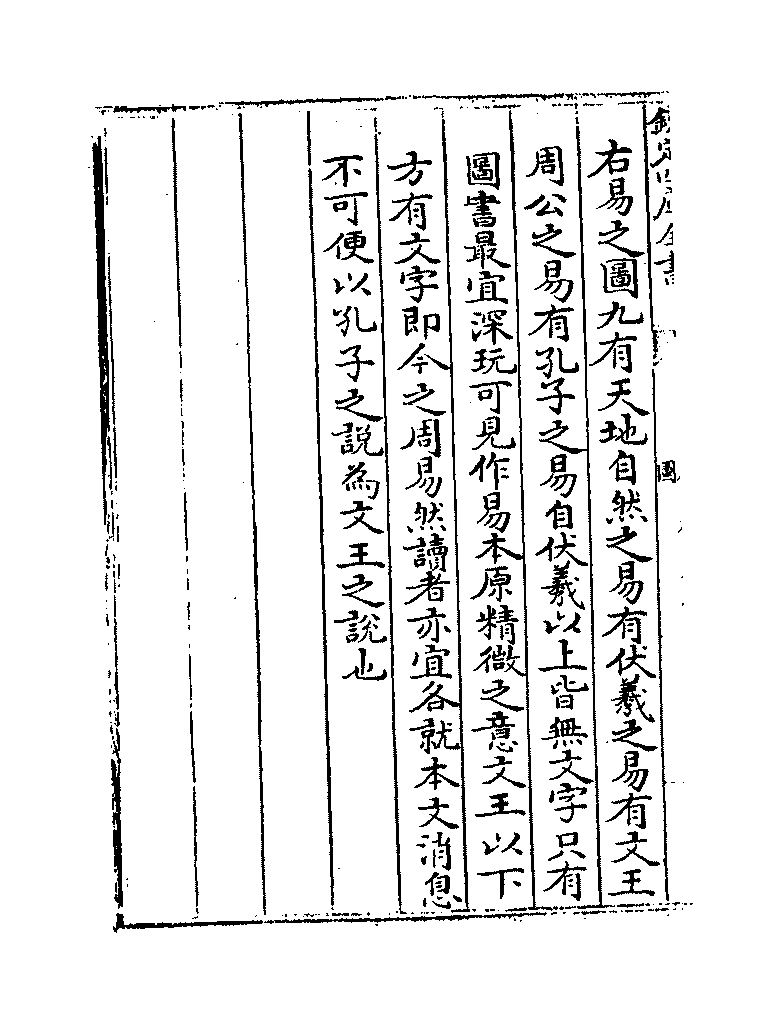 欽定四庫全書
圖
右易之圖九有天地自然之易有伏羲之易有文王
周公之易有孔子之易自伏羲以上皆無文字只有
圖書最宜深玩可見作易本原精微之意文王以下
方有文字即今之周易然讀者亦宜各就本文消息
不可便以孔子之說為文王之說也